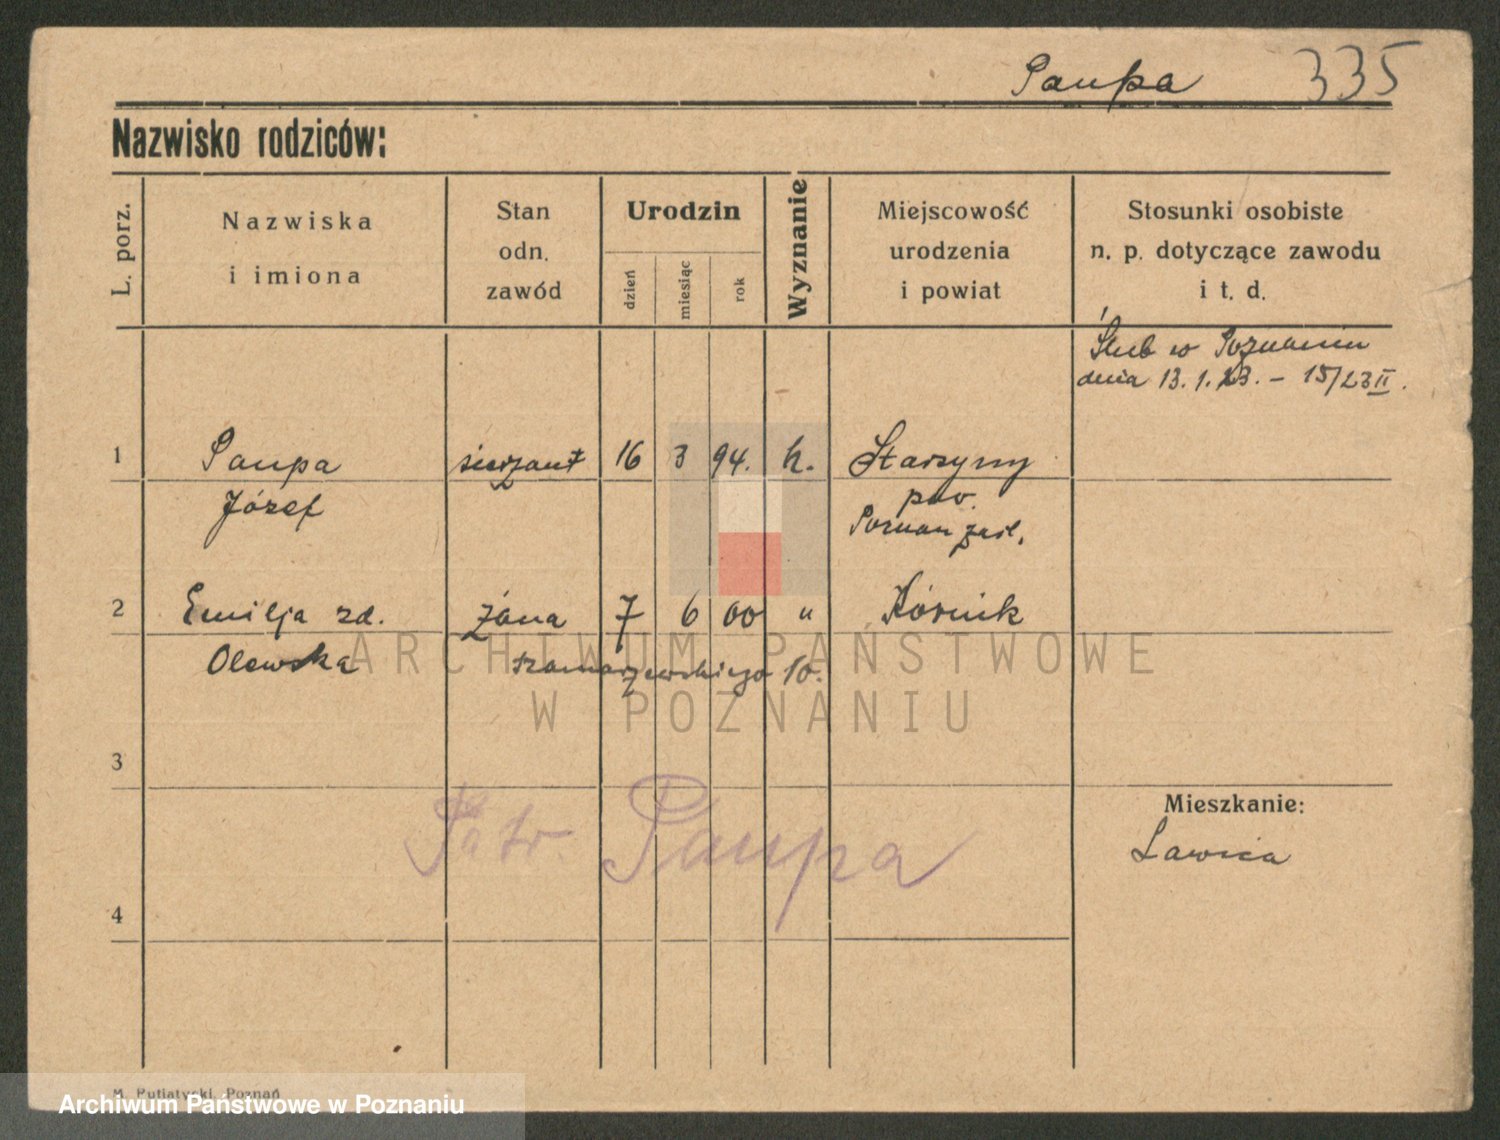 Paupa 335
Nazwisko rodziców:
L. porz.
Nazwiska
i imiona
Stan
odn.
zawód
Urodzin
dzień
miesiąc
rok
Wyznanie
Miejscowość
urodzenia
i powiat
Stosunki osobiste
n. p. dotyczące zawodu
i t. d.
Ślub w Poznaniu
dnia 13.1.23. – 15/23 II.
1 Paupa sierżant 16 3 94. k.
Józef pow.
Poznań zach.
2 Emilja zd. żona 7 6 00 " Kórnik
Olewska Szamarzewskiego 10.
3
Mieszkanie:
Ławica
Paupa
4
M. Putiatycki, Poznań
ARCHIWUM PAŃSTWOWE
W POZNANIU
Archiwum Państwowe w Poznaniu